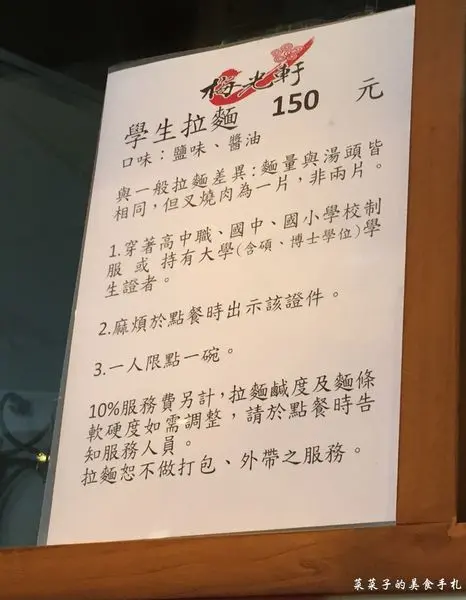 梅光軒
學生拉麵 150 元
口味：鹽味、醬油
與一般拉麵差異：麵量與湯頭皆
相同，但叉燒肉為一片，非兩片。
1.穿著高中職、國中、國小學校制
服 或 持有大學(含碩、博士學位)學
生證者。
2.麻煩於點餐時出示該證件。
3.一人限點一碗。
10%服務費另計，拉麵鹹度及麵條
軟硬度如需調整，請於點餐時告
知服務人員。
拉麵恕不做打包、外帶之服務。
菜菜子的美食手札